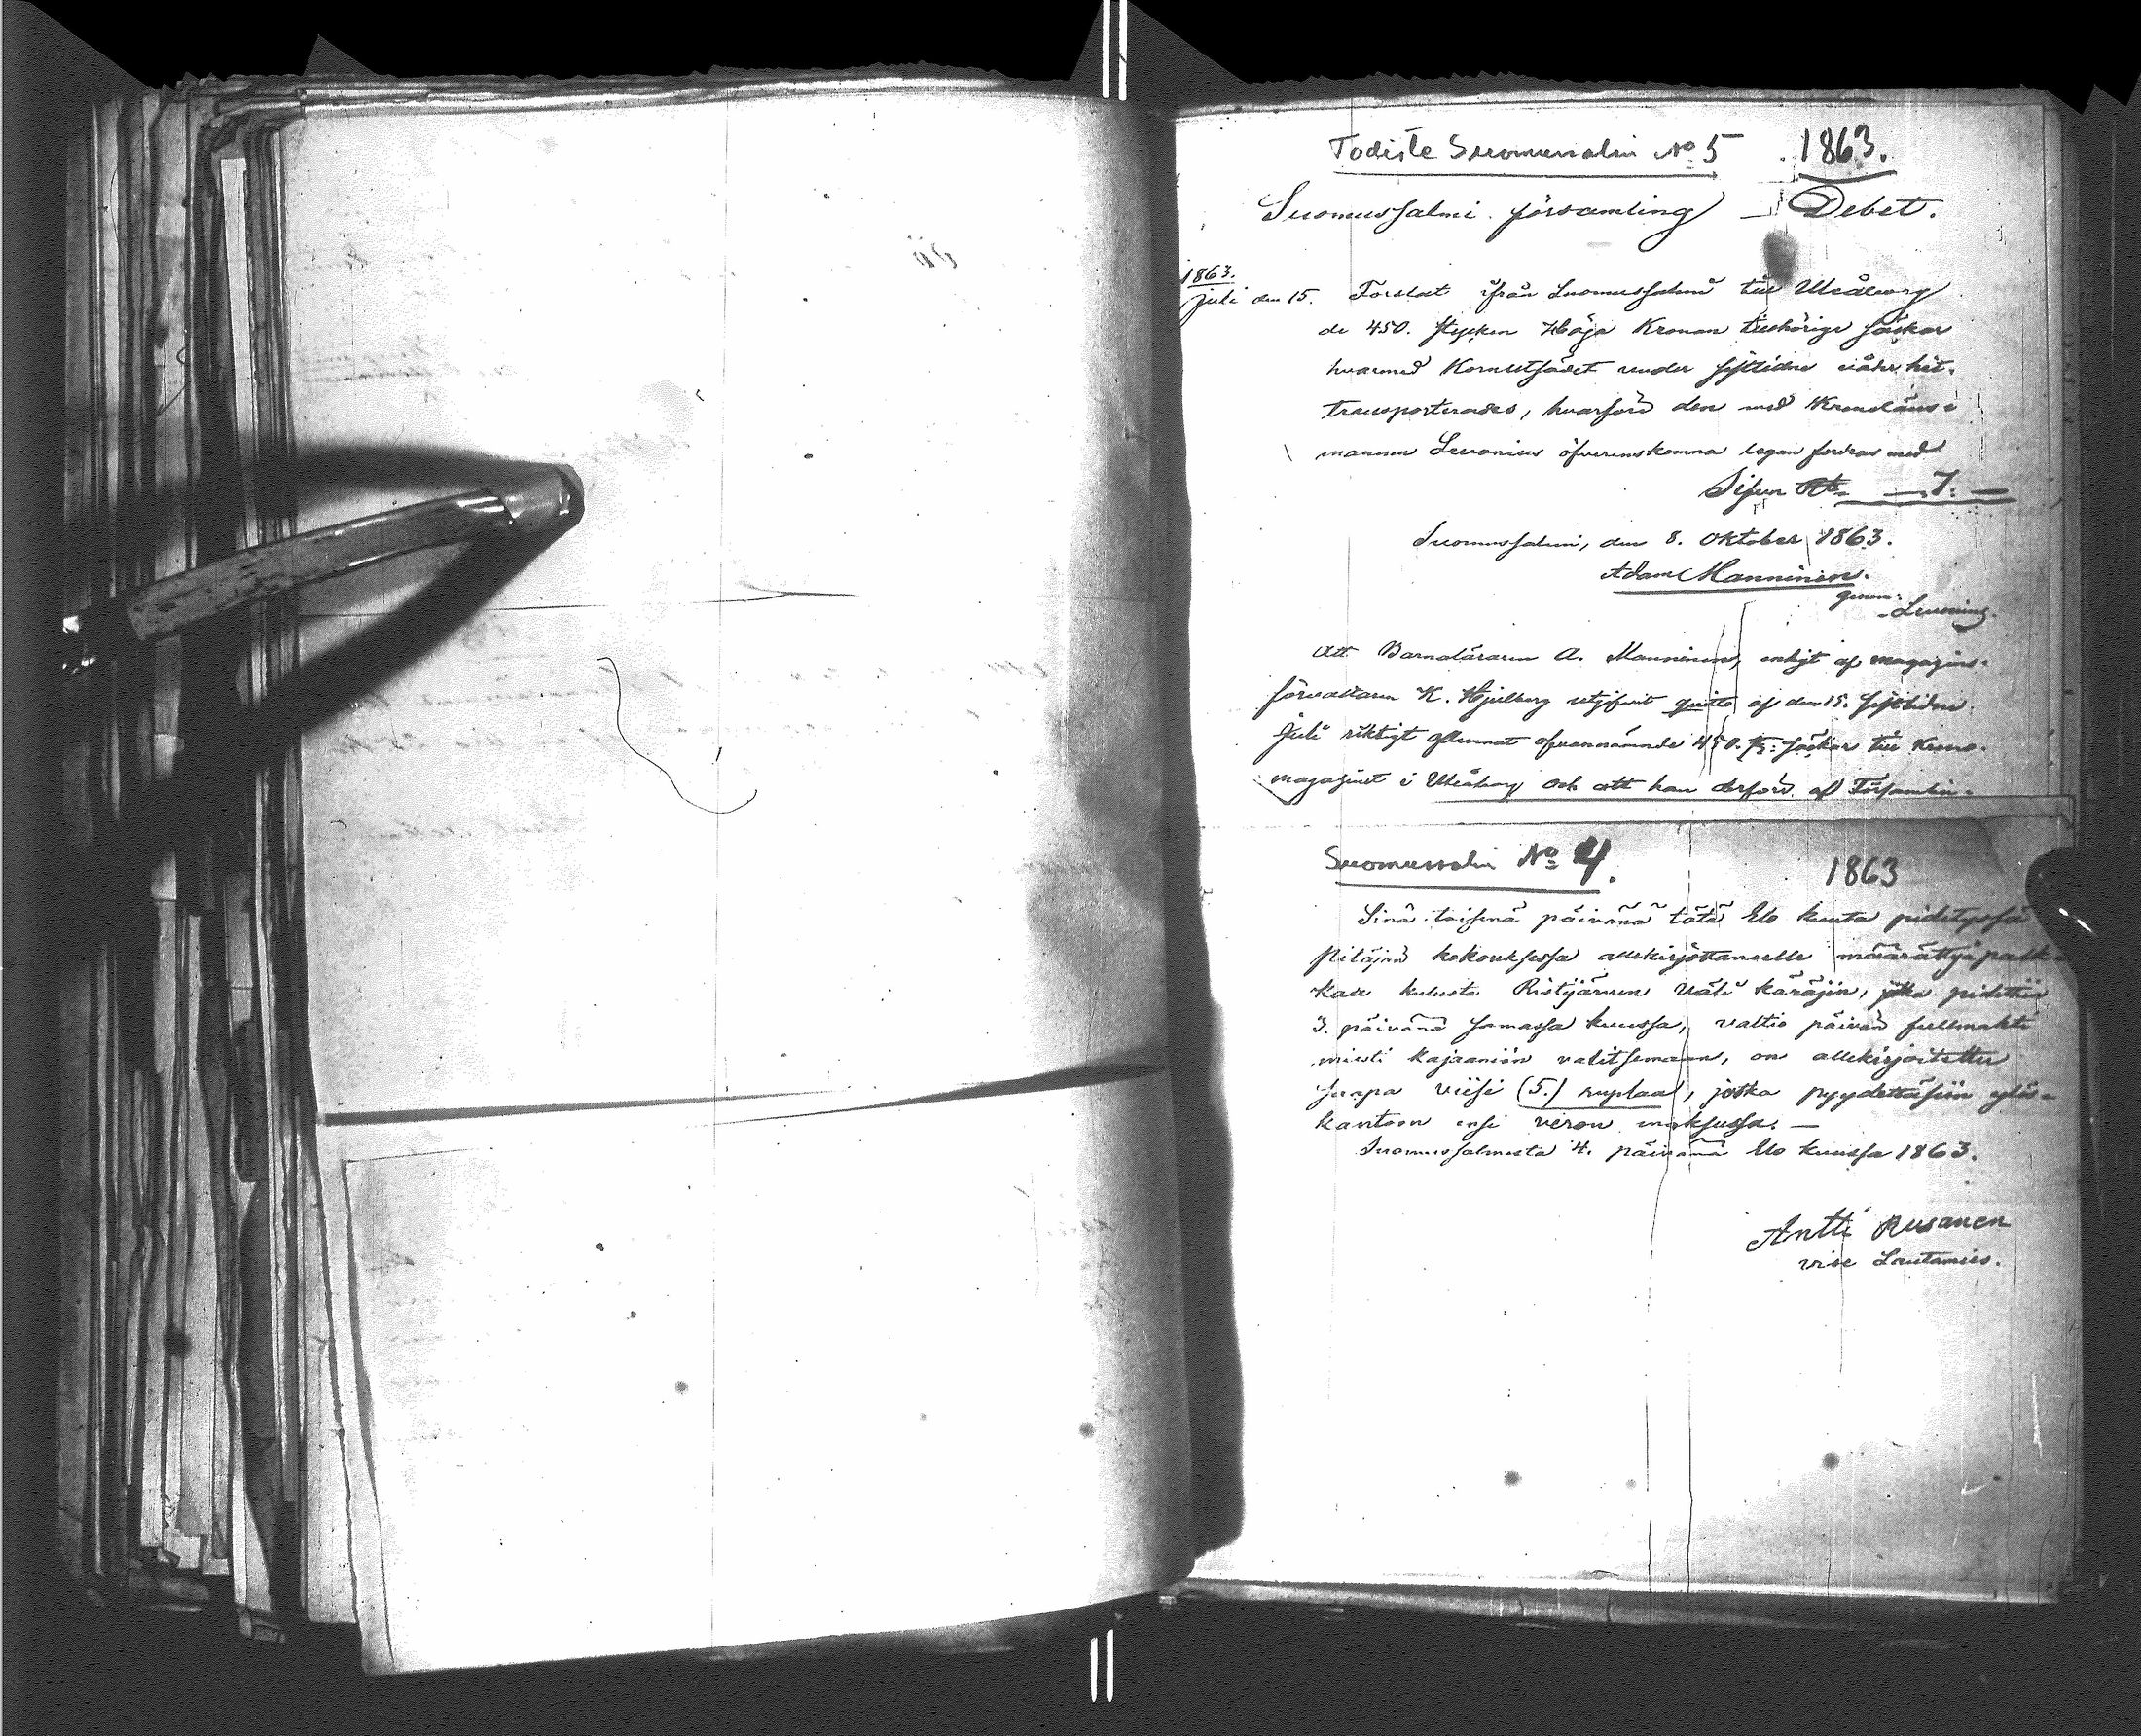 Todiste Suomussalmi No 5 1863.
Suomussalmi församling Debet.
1863.
Juli den 15. Forslat ifrån Suomussalmi till Uleåborg
de 450. stycken Höga Kronan tillhörige säckar
hvarmed Kornutsädet under sistlidne vår hit-
transporterades, hvarföre den med Kronoläns-
mannen Levonius öfverenskomna legan fordras med
Silfver Rb. — 7: —
Suomussalmi, den 8. Oktober 1863.
Adam Manninen.
genom:
Att Barnaläraren A. Manninen, enligt af magazins-
förvaltaren K. Hjelberg utgifvit quitto af den 15. sistlidne
Juli riktigt aflemnat ofvannämnde 450. st: säckar till Krono-
magazinet i Uleåborg och att han derföre af Församlin-
Suomussalmi No 4. 1863
Sinä toisena päivänä tätä Elo kuuta pidetyssä
pitäjän kokouksessa allekirjottaneelle määrättyä palk-
kaa kulusta Ristijärven Väli käräjiin, jotka pidettiin
3. päivänä samassa kuussa, valtio päivän fullmahti
miesti Kajaaniin valitsemaan, on allekirjoitettu
saapa viisi (5.) ruplaa, jotka pyydettäisiin ylös-
kantoon ensi veron maksussa. —
Suomussalmesta 4. päivänä Elo kuussa 1863.
Antti Rusanen
vice Lautamies.